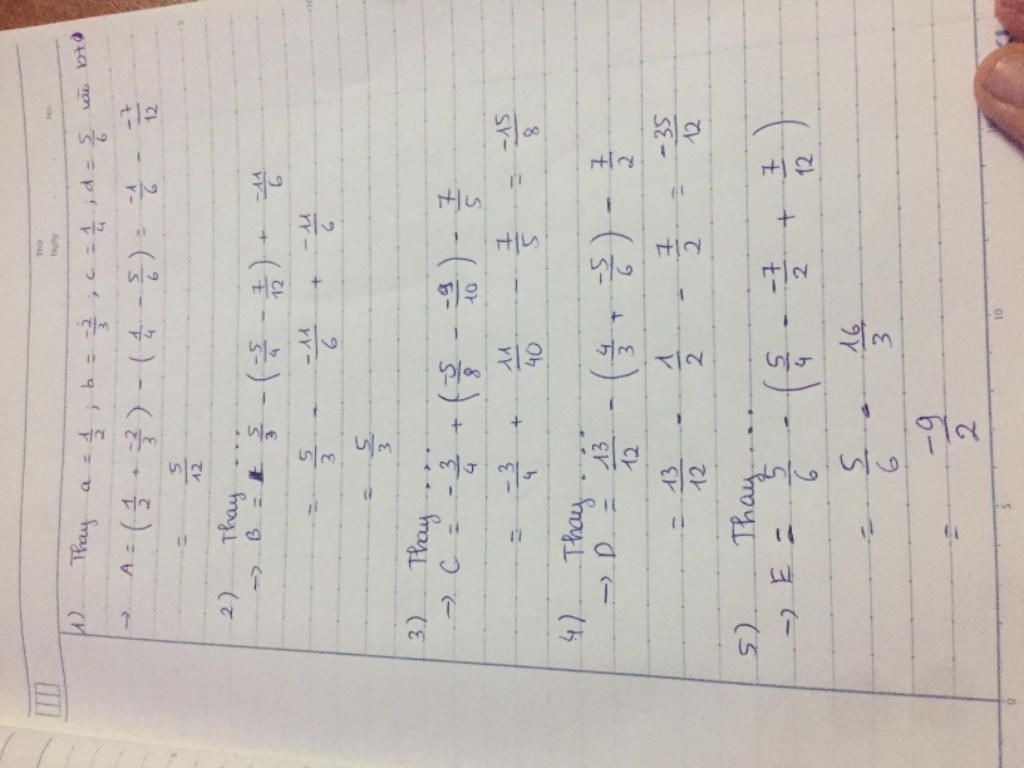 Thứ
Ngày
No.
1) Thay a = 1/2 ; b = -2/3 ; c = 1/4 ; d = 5/6 vào bt
→ A = (1/2 + -2/3) - (1/4 - 5/6) = -1/6 - -7/12
= 5/12
2) Thay ...
→ B = 5/3 - (-5/4 - 7/12) + -11/6
= 5/3 - -11/6 + -11/6
= 5/3
3) Thay ...
→ C = -3/4 + (-5/8 - -9/10) - 7/5
= -3/4 + 11/40 - 7/5 = -15/8
4) Thay ...
→ D = 13/12 - (4/3 + -5/6) - 7/2
= 13/12 - 1/2 - 7/2 = -35/12
5) Thay ...
→ E = 5/6 - (5/4 - -7/2 + 7/12)
= 5/6 - 16/3
= -9/2
0
5
10